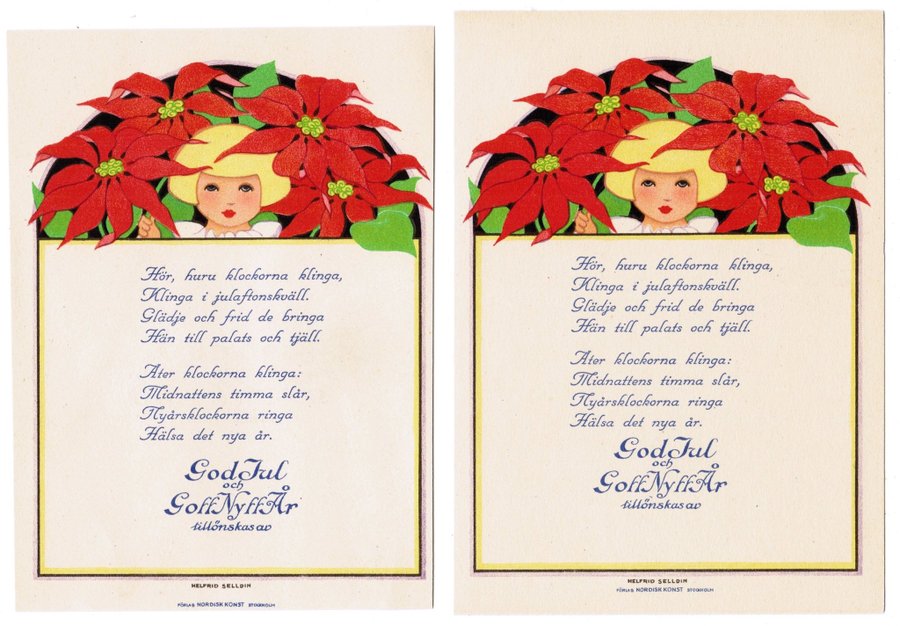 Hör, huru klockorna klinga,
Klinga i julaftonskväll.
Glädje och frid de bringa
Hän till palats och tjäll.
Åter klockorna klinga:
Midnattens timma slår,
Nyårsklockorna ringa
Hälsa det nya år.
God Jul
och
Gott Nytt År
tillönskas av
HELFRID SELLDIN
FÖRLAG NORDISK KONST STOCKHOLM
Hör, huru klockorna klinga,
Klinga i julaftonskväll.
Glädje och frid de bringa
Hän till palats och tjäll.
Åter klockorna klinga:
Midnattens timma slår,
Nyårsklockorna ringa
Hälsa det nya år.
God Jul
och
Gott Nytt År
tillönskas av
HELFRID SELLDIN
FÖRLAG NORDISK KONST STOCKHOLM